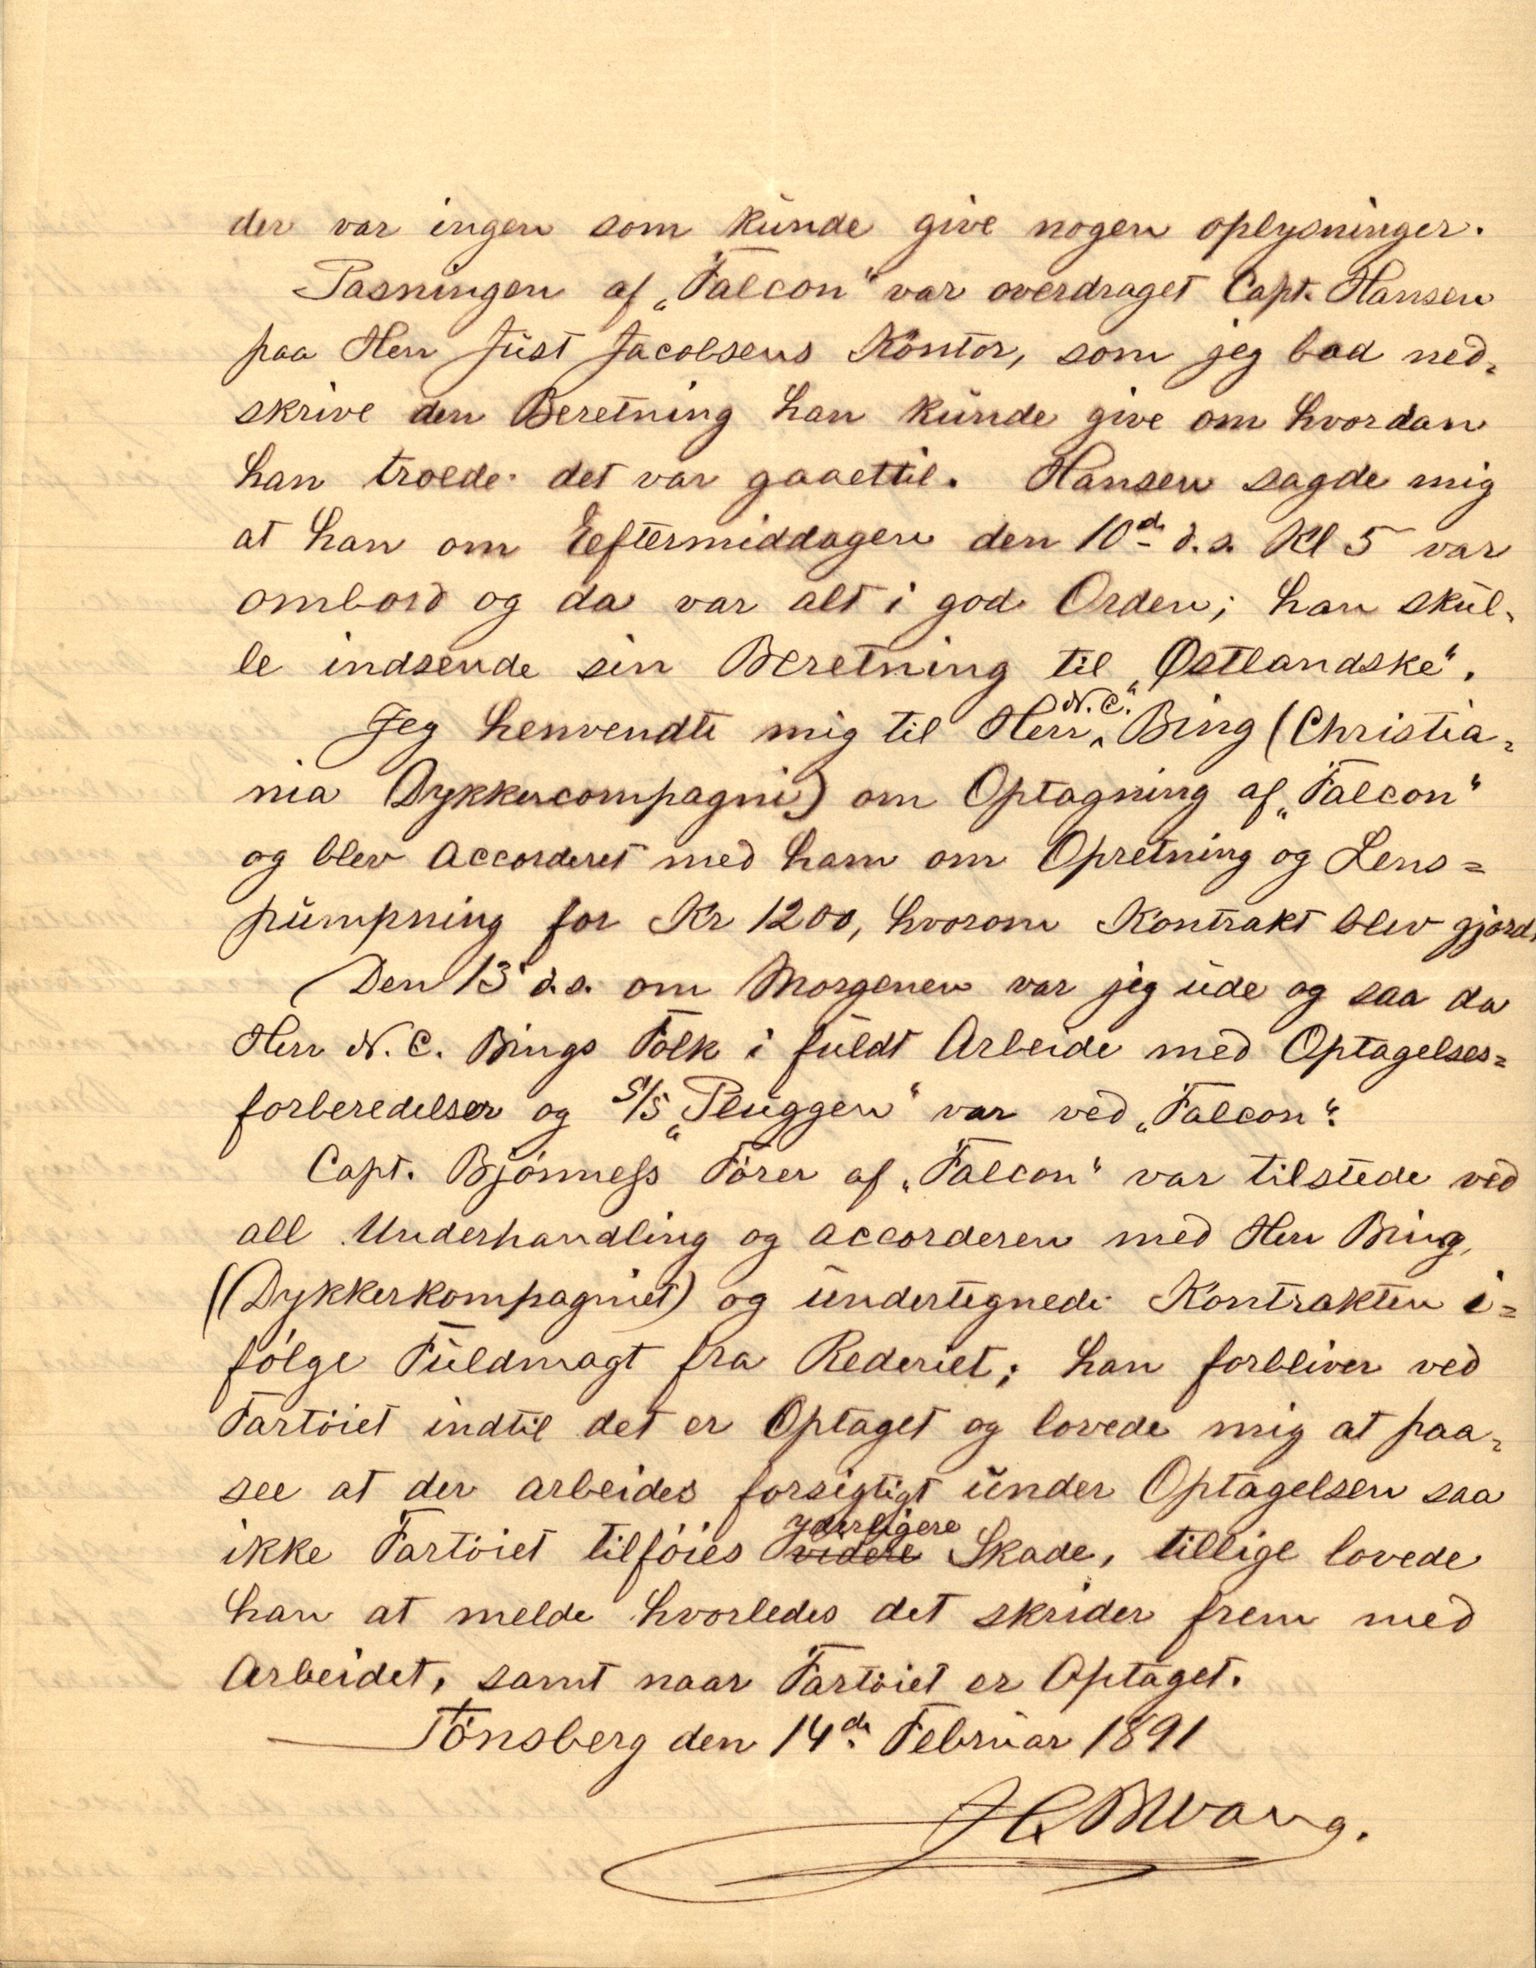 der var ingen som kunde give nogen oplysninger.
Pasningen af „Falcon“ var overdraget Capt. Hansen
paa Herr Just Jacobsens Kontor, som jeg bad ned-
skrive den Beretning han kunde give om hvordan
han troede det var gaaettil. Hansen sagde mig
at han om Eeftermiddagen den 10de d.s. Kl 5 var
ombord og da var alt i god Orden; han skul-
le indsende sin Beretning til „Østlandske“.
Jeg henvendte mig til Herr N.C. Bing (Christia-
nia Dykkercompagni) om Optagning af „Falcon“
og blev accorderet med ham om Opretning og Lens=
pumpning for Kr 1200, hvorom Kontrakt blev gjord
Den 13 d.s. om Morgenen var jeg ude og saa da
Herr N. C. Bings Folk i fuldt Arbeide med Optagelses=
forberedelser og S/S „Pluggen“ var ved „Falcon“.
Capt. Bjönness Förer af „Falcon“ var tilstede ved
all Underhandling og accorderen med Herr Bing,
(Dykkerkompagniet) og undertegnede Kontrakten i=
fölge Fuldmagt fra Rederiet; han forbliver ved
Fartöiet indtil det er Optaget og lovede mig at paa-
see at der arbeides forsigtigt under Optagelsen saa
ikke Fartöiet tilföies videre yderligere Skade, tillige lovede
han at melde hvorledes det skrider frem med
Arbeidet, samt naar Fartöiet er Optaget.
Tönsberg den 14de Februar 1891